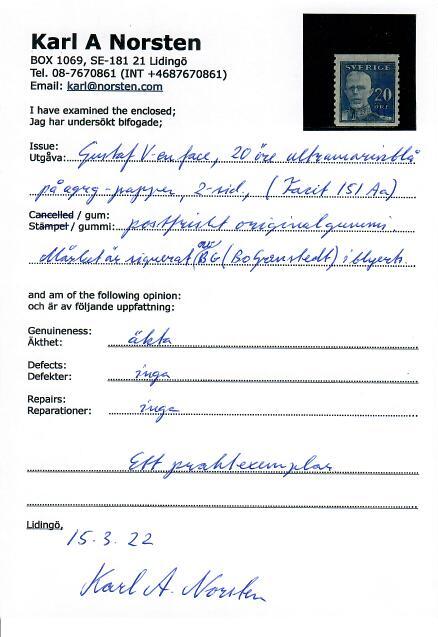 Karl A Norsten
BOX 1069, SE-181 21 Lidingö
Tel. 08-7670861 (INT +4687670861)
Email: karl@norsten.com
SVERIGE
20
ÖRE
I have examined the enclosed;
Jag har undersökt bifogade;
Issue:
Utgåva: Gustaf V en face, 20 öre ultramarinblå
på agrg-papper, 2-sid, (Facit 151 Aa)
Cancelled / gum:
Stämpel / gummi: postfriskt originalgummi.
Märket är signerat av BG (Bo Grenstedt) i blyerts.
and am of the following opinion:
och är av följande uppfattning:
Genuineness:
Äkthet: äkta
Defects:
Defekter: inga
Repairs:
Reparationer: inga
Ett praktexemplar
Lidingö,
15.3.22
Karl A. Norsten